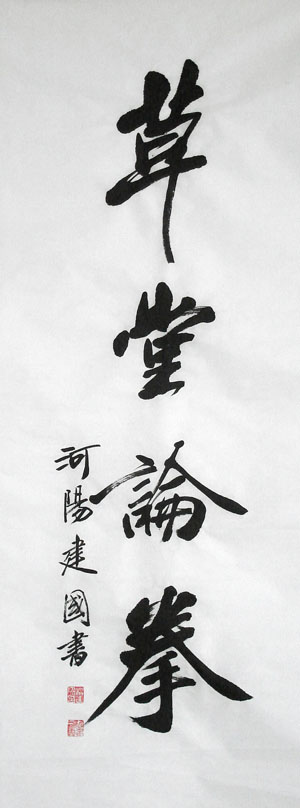 草堂論拳
河陽建國書